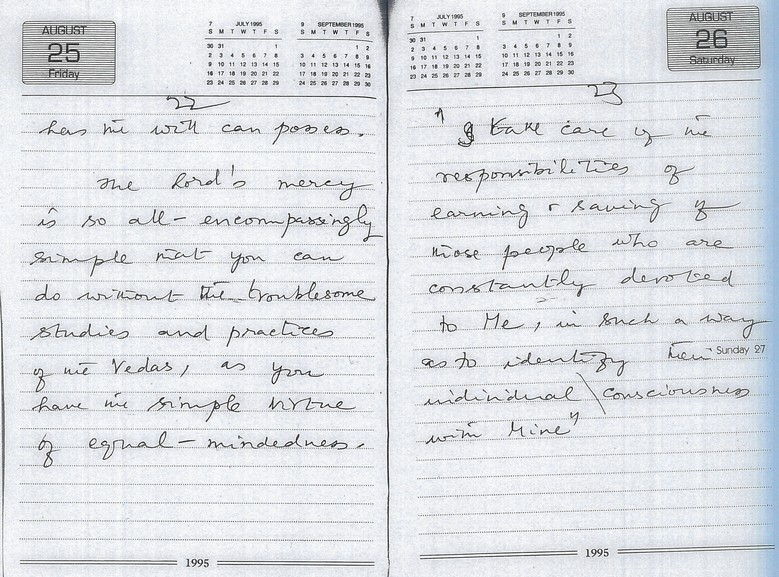 AUGUST
25
Friday
7 JULY 1995
S M T W T F S
30 31 1
2 3 4 5 6 7 8
9 10 11 12 13 14 15
16 17 18 19 20 21 22
23 24 25 26 27 28 29
9 SEPTEMBER 1995
S M T W T F S
1 2
3 4 5 6 7 8 9
10 11 12 13 14 15 16
17 18 19 20 21 22 23
24 25 26 27 28 29 30
22
has the will can posses.
The Lord's mercy
is so all-encompassingly
simple that you can
do without the troublesome
studies and practices
of the Vedas, as you
have the simple virtue
of equal-mindedness.
1995
7 JULY 1995
S M T W T F S
30 31 1
2 3 4 5 6 7 8
9 10 11 12 13 14 15
16 17 18 19 20 21 22
23 24 25 26 27 28 29
9 SEPTEMBER 1995
S M T W T F S
1 2
3 4 5 6 7 8 9
10 11 12 13 14 15 16
17 18 19 20 21 22 23
24 25 26 27 28 29 30
AUGUST
26
Saturday
23
"I take care of the
responsibilities of
earning & saving of
those people who are
constantly devoted
to Me, in such a way
as to identify their
Sunday 27
individual consciousness
with Mine"
1995